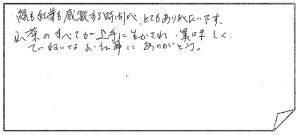 緑も紅葉も感激する時間で、とてもありがたいです。
山菜のすべてが上手に生かされ、美味しく
ていねいなお仕事にありがとう。